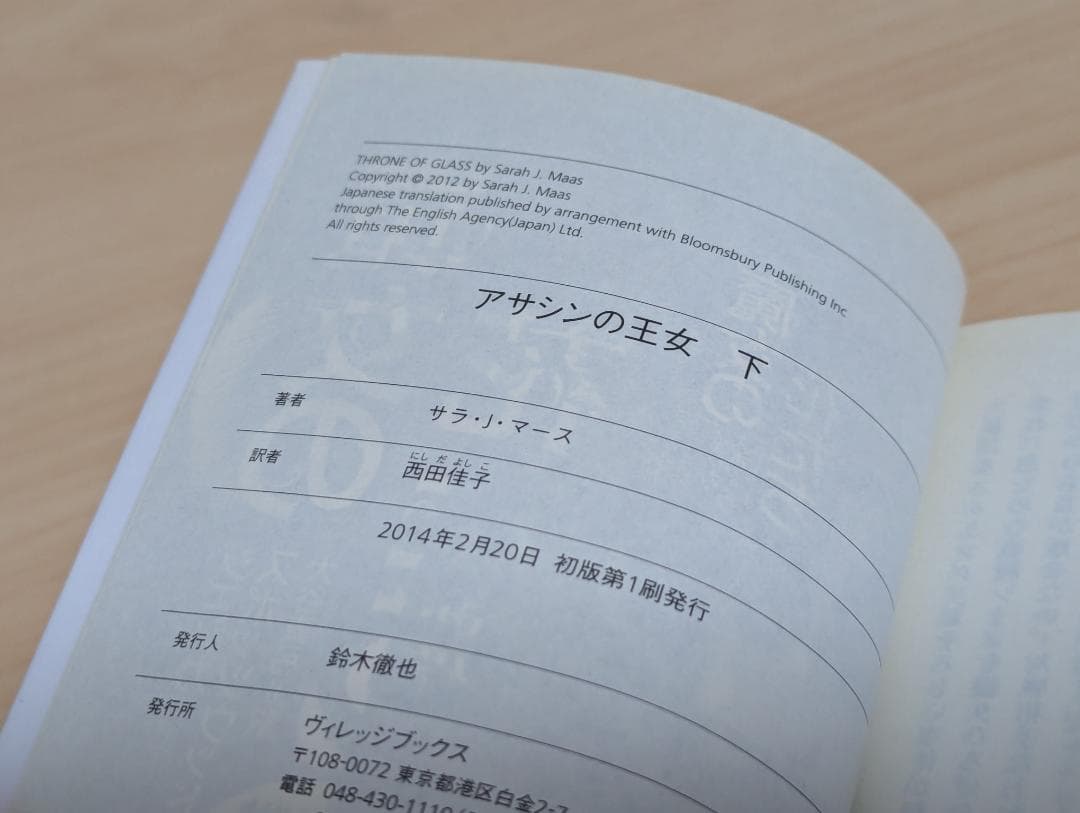 THRONE OF GLASS by Sarah J. Maas
Copyright © 2012 by Sarah J. Maas
Japanese translation published by arrangement with Bloomsbury Publishing Inc
through The English Agency(Japan) Ltd.
All rights reserved.
アサシンの王女 下
著者 サラ・J・マース
にし だ よし こ
訳者 西田佳子
2014年2月20日 初版第1刷発行
発行人 鈴木徹也
発行所 ヴィレッジブックス
〒108-0072 東京都港区白金2-7
電話 048-430-1110